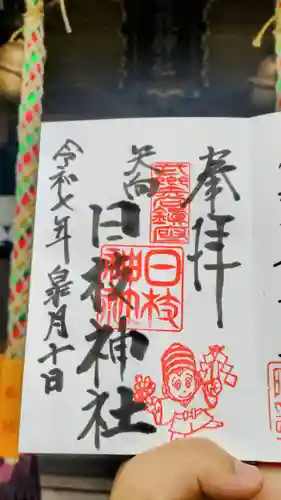 奉拝
矢向
日枝神社
日枝
神社
令和七年皐月十日